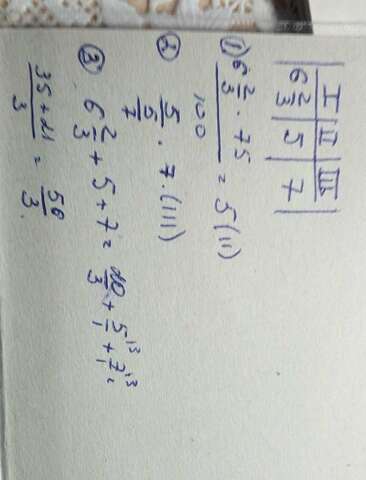 I | II | III
6 2/3 | 5 | 7
1) (6 2/3 · 75)/100 = 5 (II)
2) 5/(5/7) · 7 · (III)
3) 6 2/3 + 5 + 7 = 20/3 + 5/1 ^13 + 7/1 ^13 =
(35 + 21)/3 = 56/3